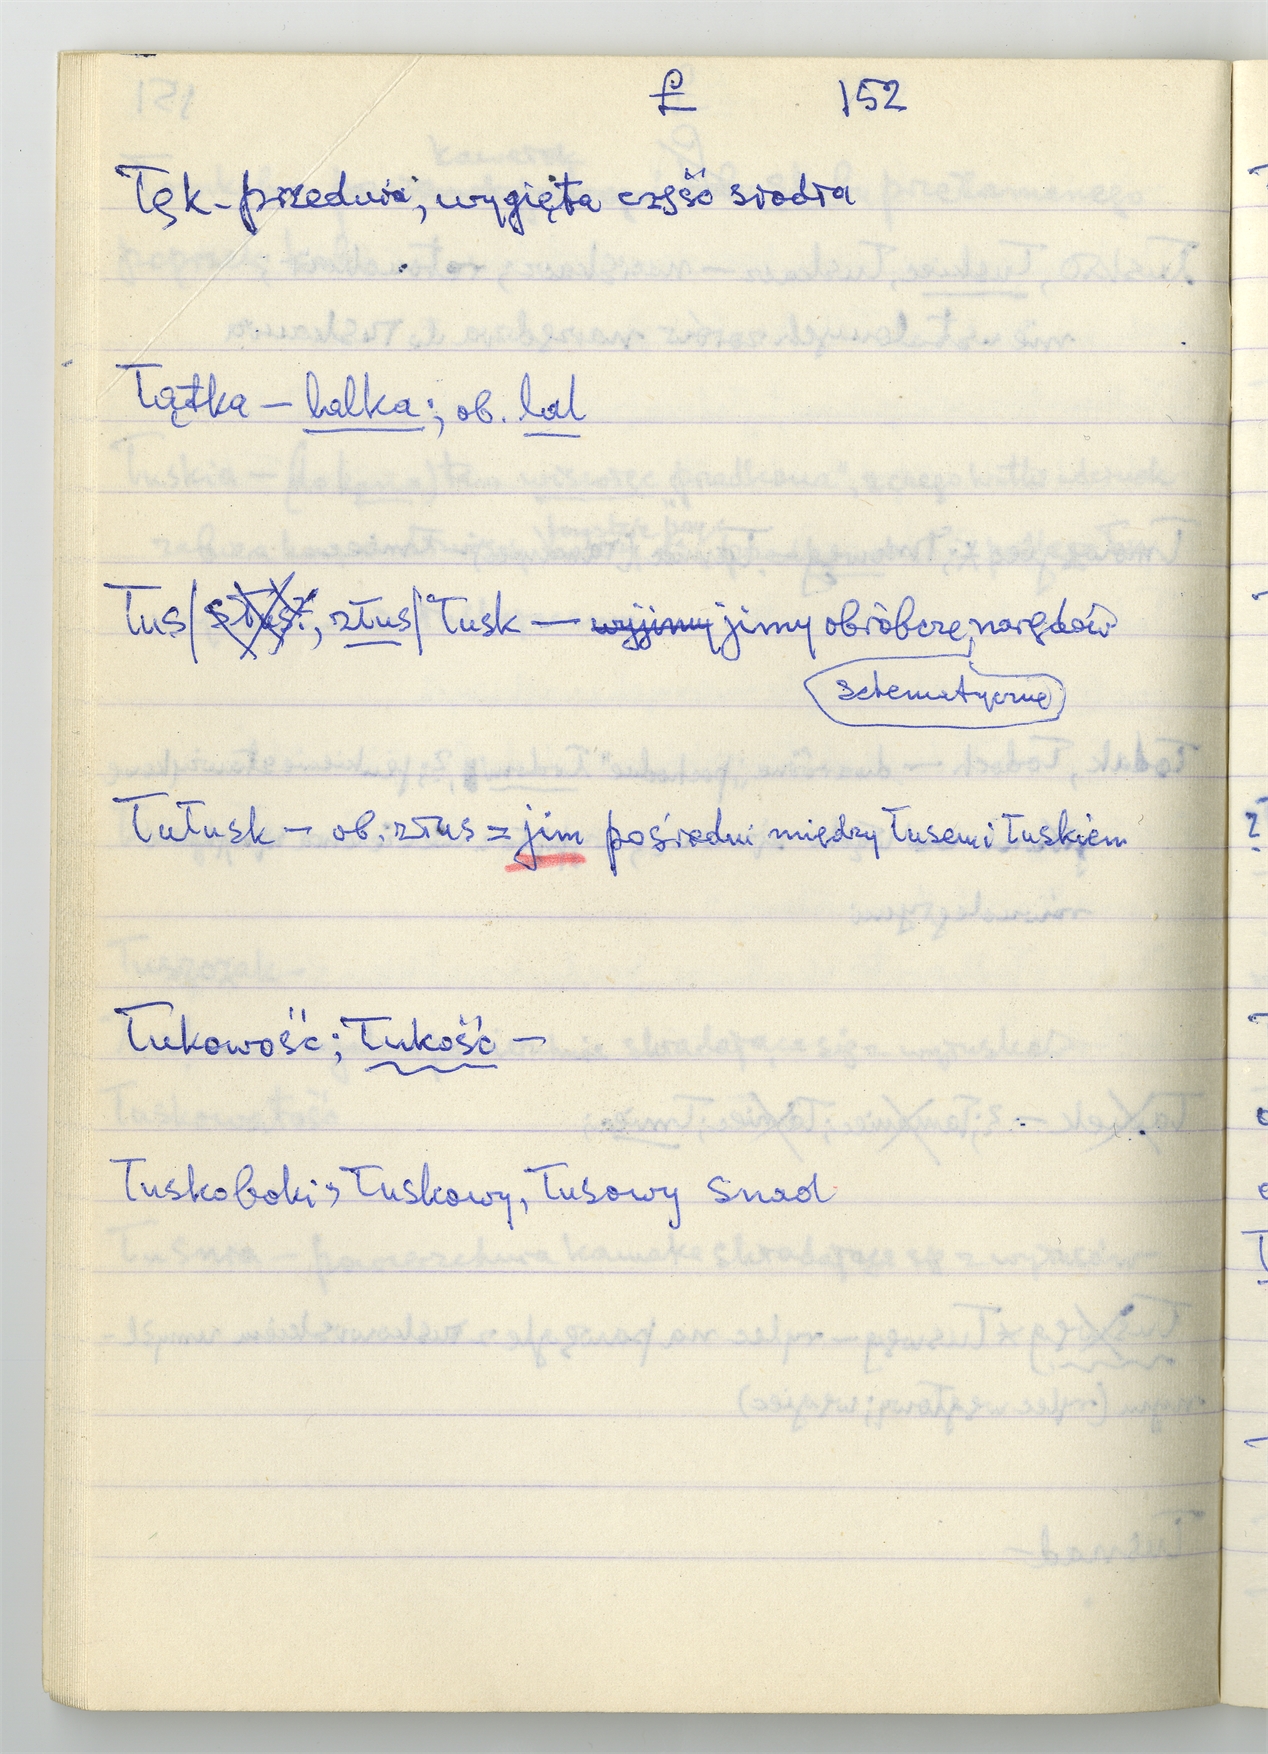 Ł 152
Łęk - przednia, wygięta część siodła
Łątka - lalka; ob. lal
Łus/ złus/ Łusk - wyjimy jimy obróbcze, narzędów
schematyczne
Łułusk - ob. złus = jim pośredni między łusem i łuskiem
Łukowość; Łukość -
Łuskoboki; Łuskowy, Łusowy snad